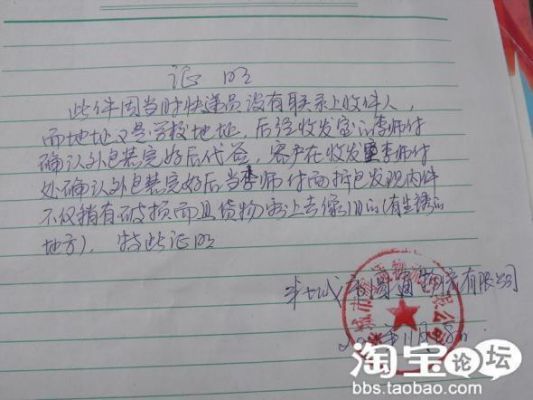 证明
此件因当时快递员没有联系上收件人，
而地址又是学校地址，后经收发室李师付
确认外包装完好后代签，客户在收发室李师付
处确认外包装完好后当李师付面拆包发现内件
不仅稍有破损而且货物看上去像旧的(有生锈的
地方)。特此证明
通物流有限公司
年11月8日
淘宝论坛
bbs.taobao.com